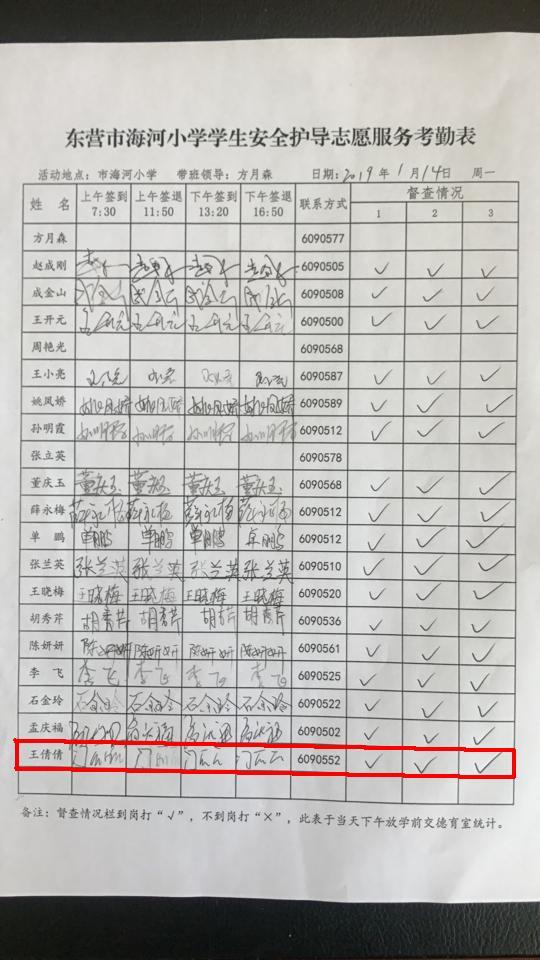 东营市海河小学学生安全护导志愿服务考勤表
活动地点：市海河小学 带班领导：方月森 日期：2019年1月14日 周一
姓 名 上午签到 7:30 上午签退 11:50 下午签到 13:20 下午签退 16:50 联系方式 督查情况 1 2 3
方月森 6090577
赵成刚 6090505 ✓ ✓ ✓
成金山 成金山 成金山 成金山 成金山 6090508 ✓ ✓ ✓
王开元 王开元 王开元 王开元 王开元 6090500 ✓ ✓ ✓
周艳光 6090568
王小亮 6090587 ✓ ✓ ✓
姚凤娇 姚凤娇 姚凤娇 姚凤娇 姚凤娇 6090589 ✓ ✓ ✓
孙明霞 孙明霞 孙明霞 孙明霞 孙明霞 6090512 ✓ ✓ ✓
张立英 6090578
董庆玉 董庆玉 董庆玉 董庆玉 董庆玉 6090568 ✓ ✓ ✓
薛永梅 薛永梅 薛永梅 薛永梅 薛永梅 6090512 ✓ ✓ ✓
单 鹏 单鹏 单鹏 单鹏 单鹏 6090512 ✓ ✓ ✓
张兰英 张兰英 张兰英 张兰英 张兰英 6090510 ✓ ✓ ✓
王晓梅 王晓梅 王晓梅 王晓梅 王晓梅 6090520 ✓ ✓ ✓
胡秀芹 胡秀芹 胡秀芹 胡秀芹 胡秀芹 6090536 ✓ ✓ ✓
陈妍妍 陈妍妍 陈妍妍 陈妍妍 陈妍妍 6090561 ✓ ✓ ✓
李 飞 李飞 李飞 李飞 李飞 6090525 ✓ ✓ ✓
石金玲 石金玲 石金玲 石金玲 石金玲 6090522 ✓ ✓ ✓
孟庆福 6090502 ✓ ✓ ✓
王倩倩 6090552 ✓ ✓ ✓
备注：督查情况栏到岗打“√”，不到岗打“×”，此表于当天下午放学前交德育室统计。